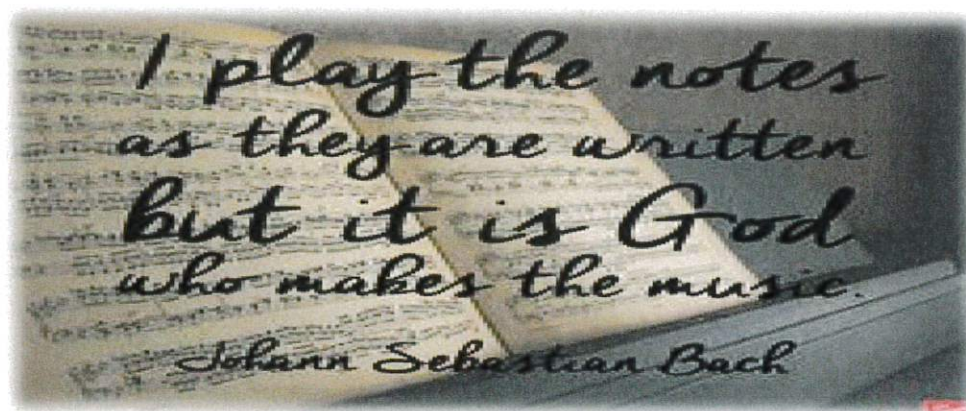 I play the notes
as they are written
but it is God
who makes the music.
Johann Sebastian Bach